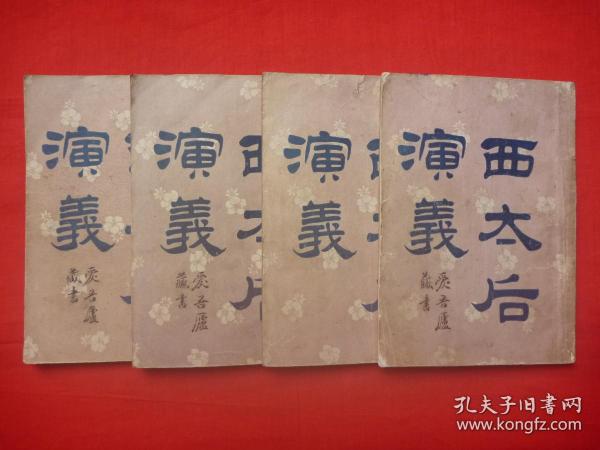 西太后
演義
愛吾廬
藏書
西太后
演義
西太后
演義
愛吾廬
藏書
演義
愛吾廬
藏書
孔夫子旧书网
www.kongfz.com